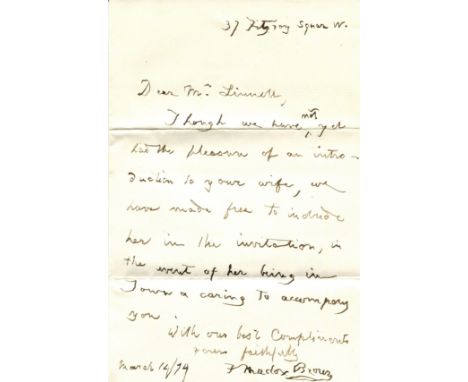 37 Fitzroy Square W.
Dear Mr Linnell,
Though we have not yet
had the pleasure of an intro-
duction to your wife, we
have made free to include
her in the invitation, in
the event of her being in
Town & caring to accompany
you.
With our best Compliments
Yours faithfully
F Madox Brown
March 14/74